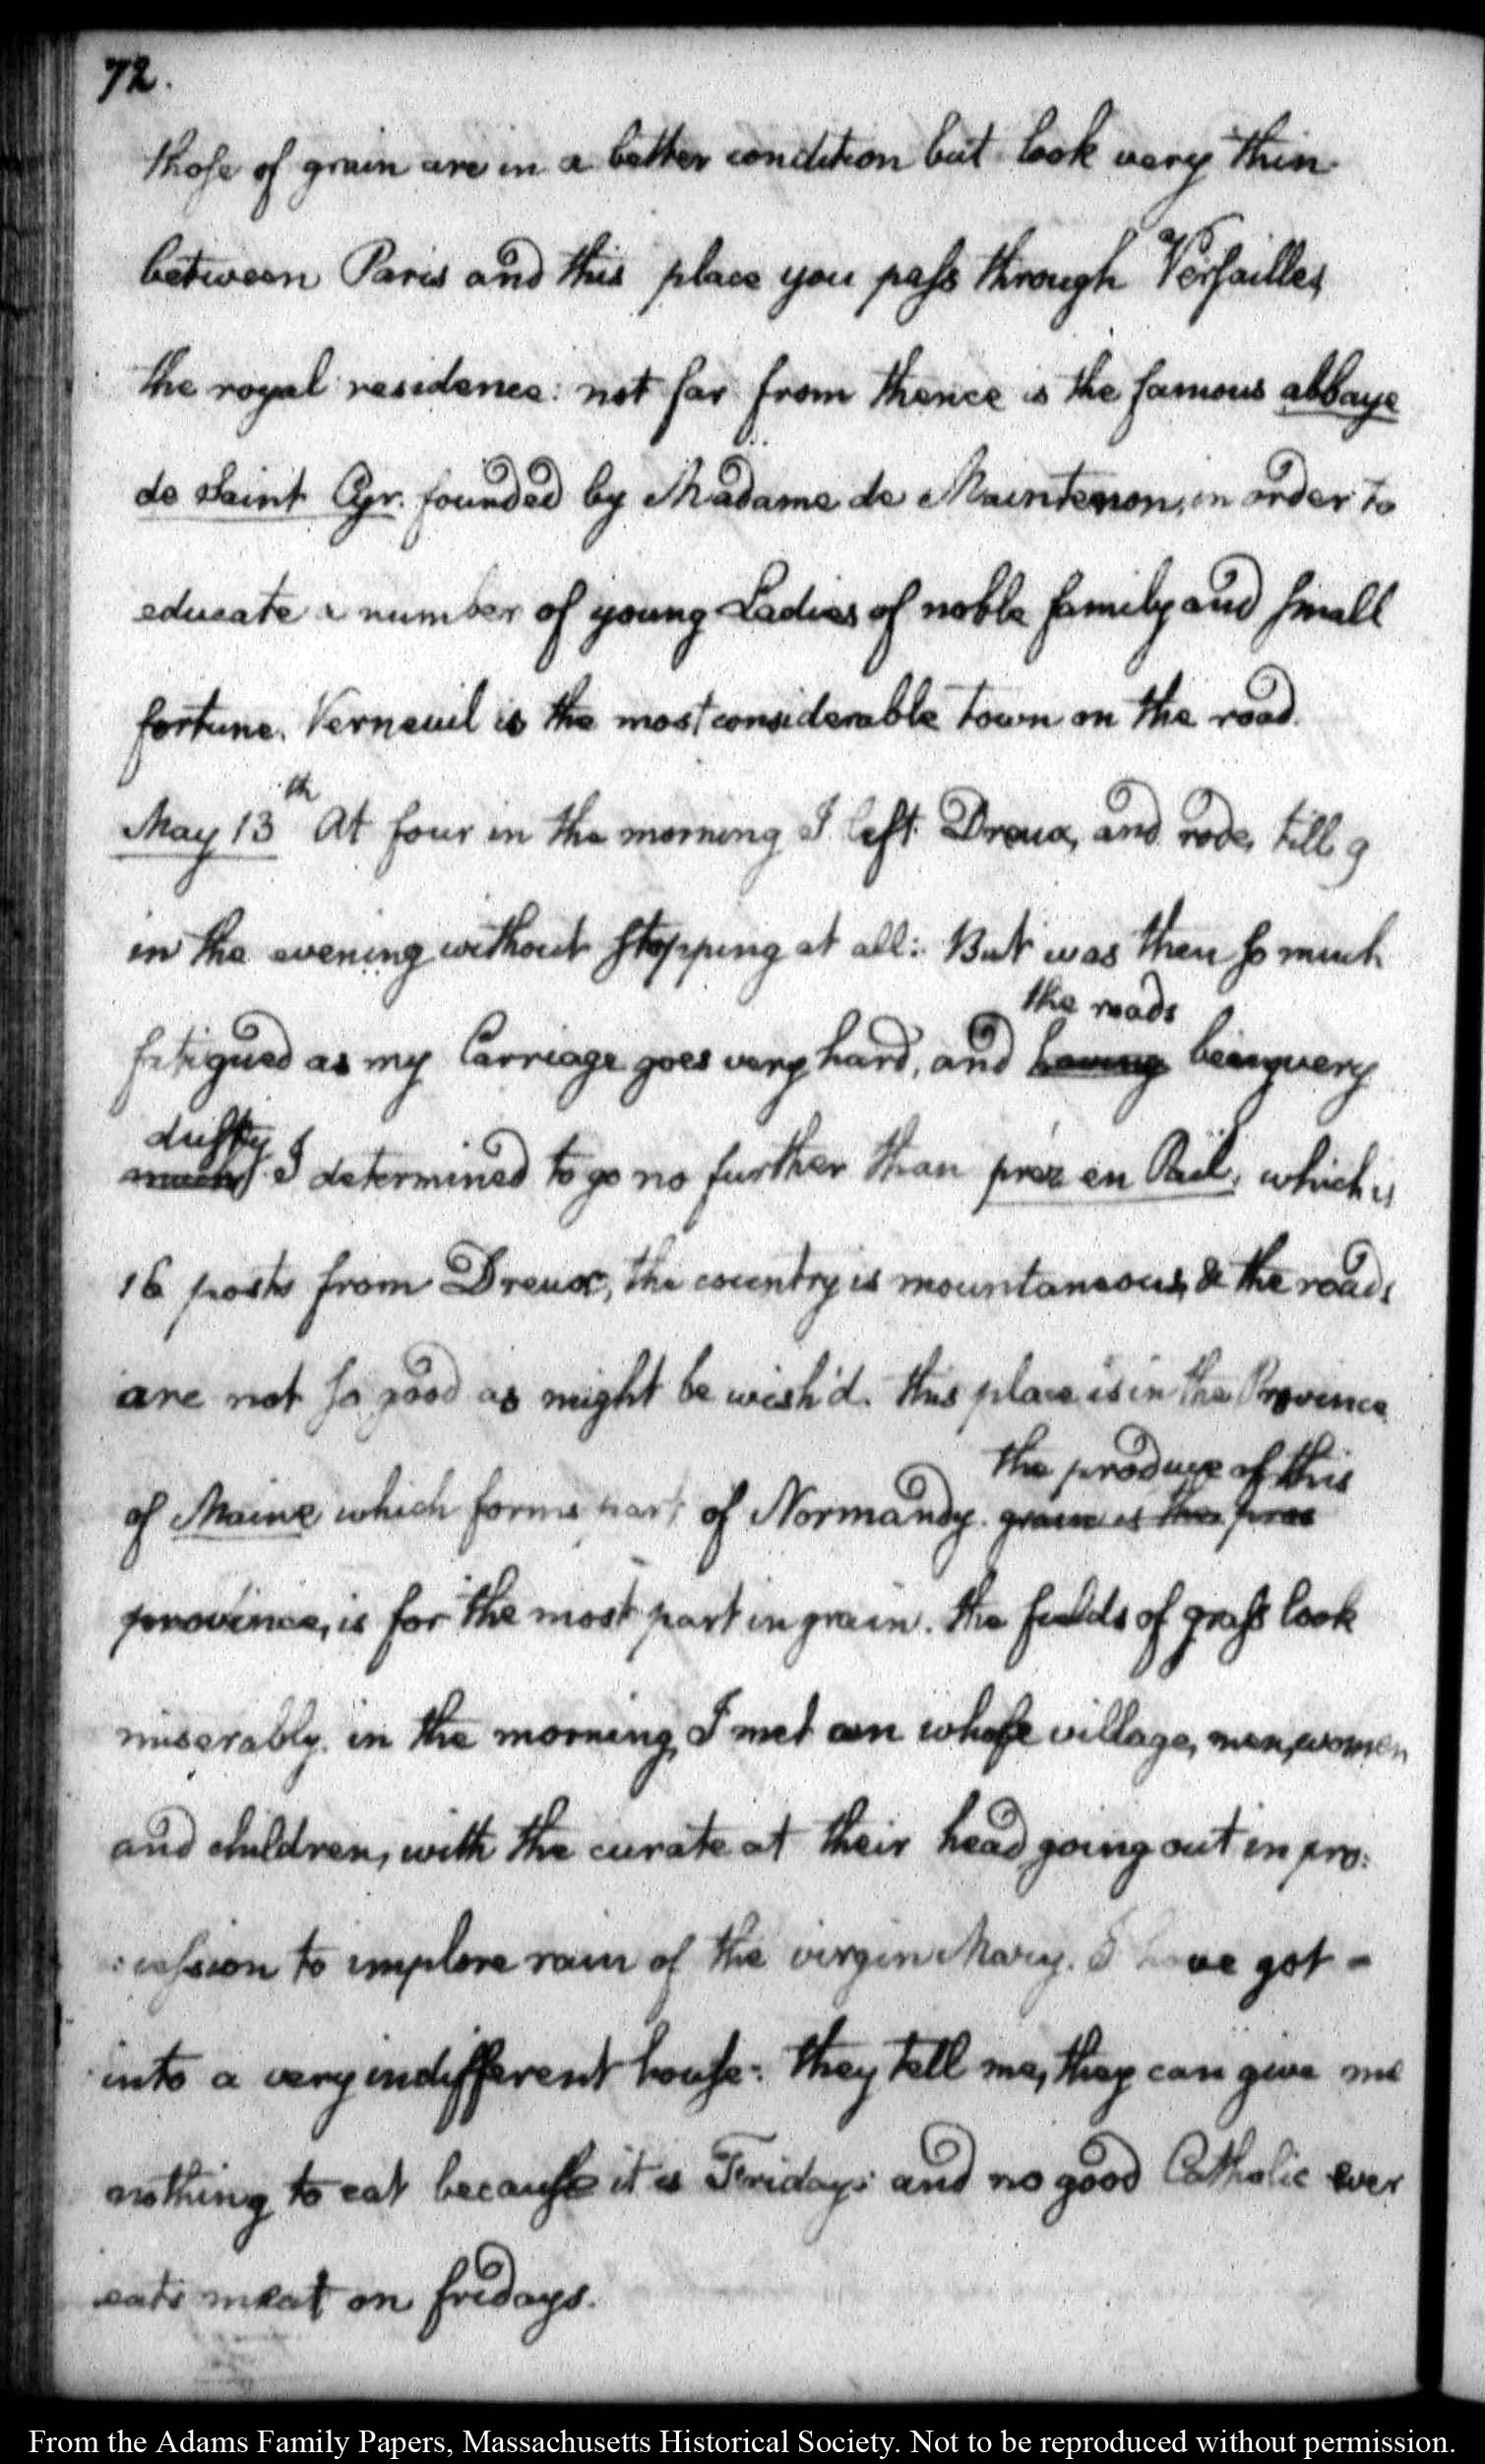 72.
those of grain are in a better condition but look very thin
between Paris and this place you pass through Versailles
the royal residence: not far from thence is the famous abbaye
de Saint Cyr. founded by Madame de Maintenon, in order to
educate a number of young Ladies of noble family and small
fortune. Verneuil is the most considerable town on the road.
May 13th At four in the morning I left Dreux, and rode, till 9
in the evening without stopping at all: But was then so much
the roads
fatigued as my Carriage goes very hard, and having being very
dusty
much I determined to go no further than prèz en Pail, which is
16 posts from Dreux, the country is mountaneous, & the roads
are not so good as might be wish'd. this place is in the Province
of Maine which forms part of Normandy.
the produce of this
grain is the proe
province, is for the most part in grain. the fields of grass look
miserably. in the morning, I met an whole village, men, women
and children, with the curate at their head going out in pro:
:cession to implore rain of the virgin Mary. I have got
into a very indifferent house: they tell me, they can give me
nothing to eat because it is Friday: and no good Catholic ever
eats meat on fridays.
From the Adams Family Papers, Massachusetts Historical Society. Not to be reproduced without permission.